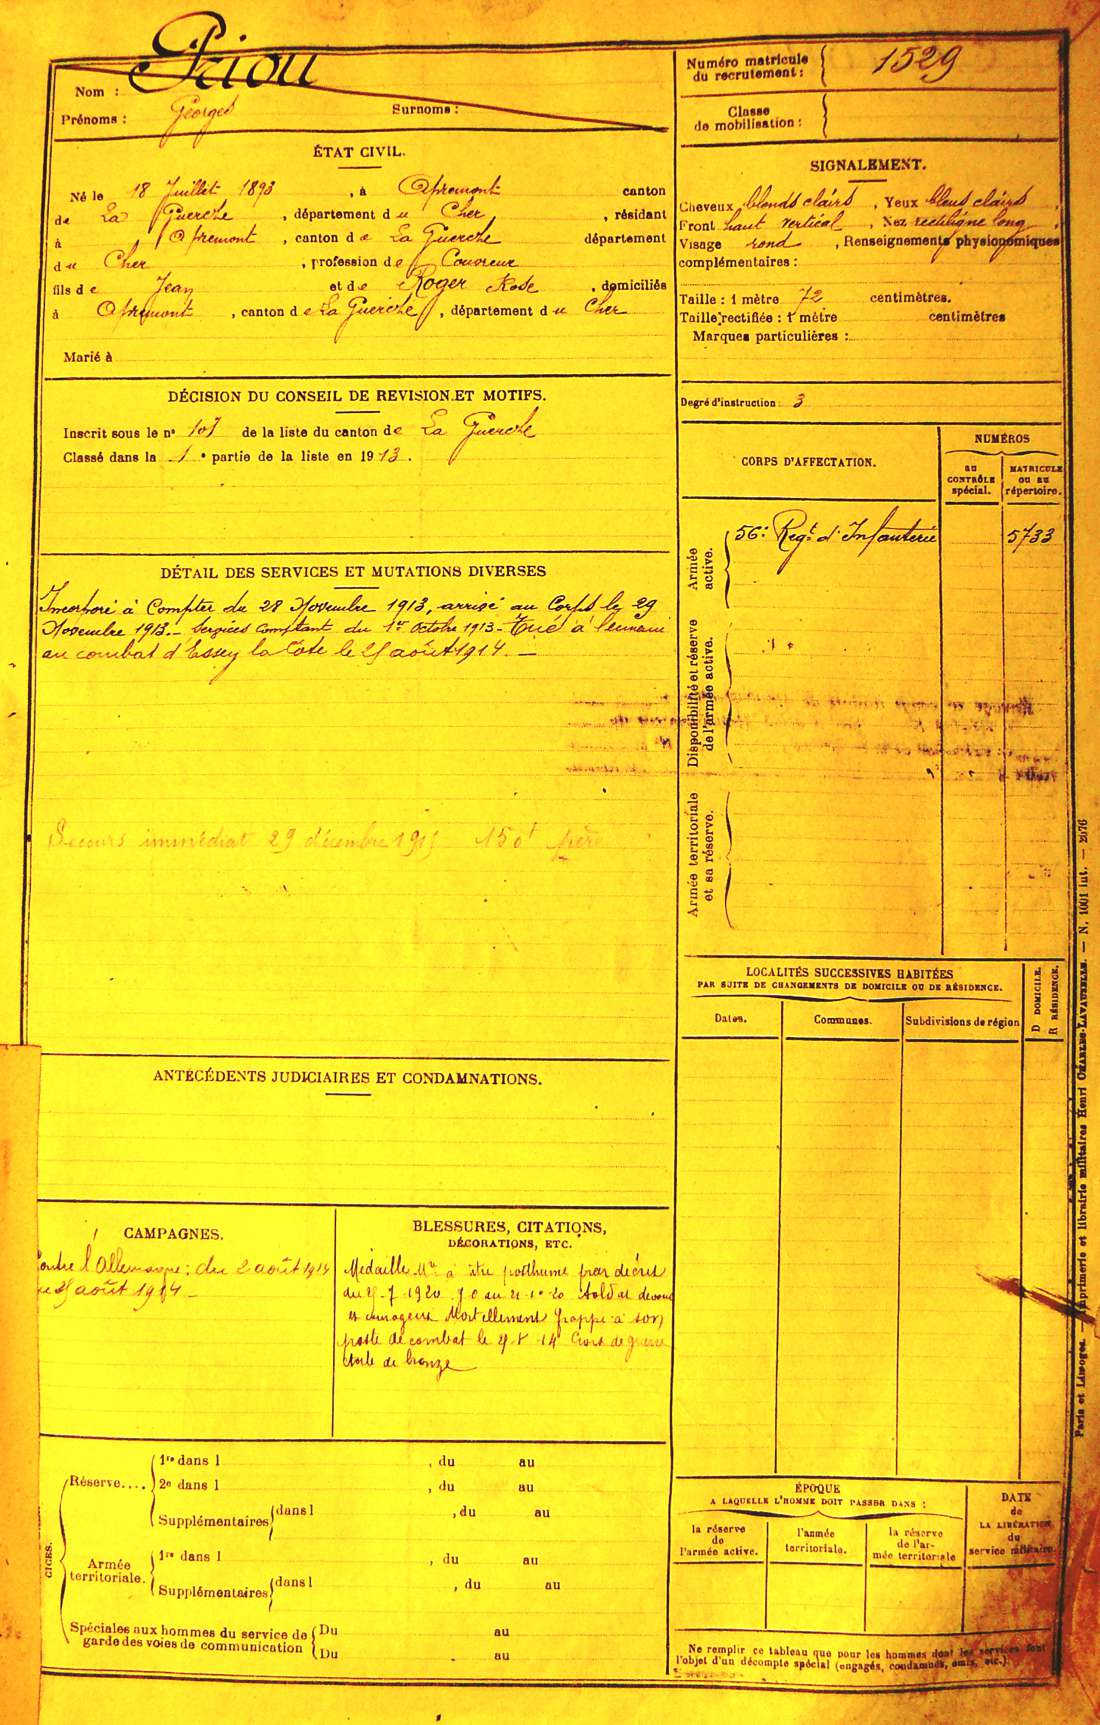 Priou
Nom :
Prénoms : Georges Surnoms :
Numéro matricule du recrutement : 1529
Classe de mobilisation :
ÉTAT CIVIL.
Né le 18 Juillet 1893, à Apremont canton
de La Guerche, département du Cher, résidant
à Apremont, canton de La Guerche département
du Cher, profession de Couvreur
fils de Jean et de Roger Rose, domiciliés
à Apremont, canton de La Guerche, département du Cher
Marié à
SIGNALEMENT.
Cheveux blonds clairs, Yeux bleus clairs,
Front haut vertical, Nez rectiligne long,
Visage rond, Renseignements physionomiques
complémentaires :
Taille : 1 mètre 72 centimètres.
Taille rectifiée : 1 mètre centimètres
Marques particulières :
Degré d'instruction : 3
DÉCISION DU CONSEIL DE REVISION ET MOTIFS.
Inscrit sous le n° de la liste du canton de La Guerche
Classé dans la 1e partie de la liste en 1913.
CORPS D'AFFECTATION.
NUMÉROS
au CONTRÔLE spécial.
MATRICULE OU AU répertoire.
Armée active.
56e Regt d'Infanterie 5733
Disponibilité et réserve de l'armée active.
Armée territoriale et sa réserve.
DÉTAIL DES SERVICES ET MUTATIONS DIVERSES
Incorporé à Compter du 28 Novembre 1913, arrivé au Corps le 29
Novembre 1913.- Services comptant du 1er Octobre 1913- Tué à l'ennemi
au combat d'Essey la Côte le 25 août 1914. -
Secours immédiat 29 décembre 1915 150f père
LOCALITÉS SUCCESSIVES HABITÉES
PAR SUITE DE CHANGEMENTS DE DOMICILE OU DE RÉSIDENCE.
Dates.
Communes.
Subdivisions de région
D DOMICILE.
R RÉSIDENCE.
ANTÉCÉDENTS JUDICIAIRES ET CONDAMNATIONS.
CAMPAGNES.
Contre l'Allemagne : du 2 août 1914
au 25 août 1914 -
BLESSURES, CITATIONS,
DÉCORATIONS, ETC.
Médaille Mre à titre posthume par décret
du 5-7-1920 J O du Soldat dévoué
et courageux Mortellement frappé à son
poste de combat le 25-8-14 Croix de guerre
étoile de bronze
Réserve....
1re dans l , du au
2e dans l , du au
Supplémentaires dans l , du au
Armée territoriale.
1re dans l , du au
Supplémentaires dans l , du au
Spéciales aux hommes du service de garde des voies de communication
Du au
Du au
CICES.
ÉPOQUE
A LAQUELLE L'HOMME DOIT PASSER DANS :
la réserve de l'armée active.
l'armée territoriale.
la réserve de l'armée territoriale
DATE de LA LIBÉRATION du service militaire.
Ne remplir ce tableau que pour les hommes dont les services font
l'objet d'un décompte spécial (engagés, condamnés, omis, etc.).
Paris et Limoges. — Imprimerie et librairie militaires Henri CHARLES-LAVAUZELLE. — N. 1001 int. — 2076